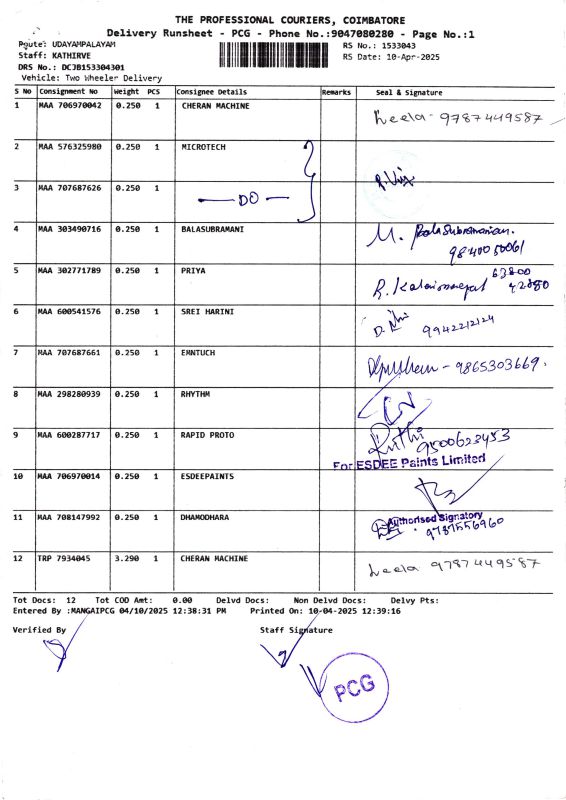 THE PROFESSIONAL COURIERS, COIMBATORE
Delivery Runsheet - PCG - Phone No.:9047080280 - Page No.:1
Route: UDAYAMPALAYAM
RS No.: 1533043
Staff: KATHIRVE
RS Date: 10-Apr-2025
DRS No.: DCJB153304301
Vehicle: Two Wheeler Delivery
S No Consignment No Weight PCS Consignee Details Remarks Seal & Signature
1 MAA 706970042 0.250 1 CHERAN MACHINE Leela - 9787449587
2 MAA 576325980 0.250 1 MICROTECH
3 MAA 707687626 0.250 1 — DO —
4 MAA 303490716 0.250 1 BALASUBRAMANI M. BalaSubramanian.
9840050061
5 MAA 302771789 0.250 1 PRIYA 63800
42880
6 MAA 600541576 0.250 1 SREI HARINI 9942212124
7 MAA 707687661 0.250 1 EMNTUCH - 9865303669.
8 MAA 298280939 0.250 1 RHYTHM
9 MAA 600287717 0.250 1 RAPID PROTO Ruthi
9500623453
For ESDEE Paints Limited
10 MAA 706970014 0.250 1 ESDEEPAINTS
Authorised Signatory
11 MAA 708147992 0.250 1 DHAMODHARA 9787556960
12 TRP 7934045 3.290 1 CHERAN MACHINE Leela 9787449587
Tot Docs: 12 Tot COD Amt: 0.00 Delvd Docs: Non Delvd Docs: Delvy Pts:
Entered By :MANGAIPCG 04/10/2025 12:38:31 PM Printed On: 10-04-2025 12:39:16
Verified By Staff Signature
PCG